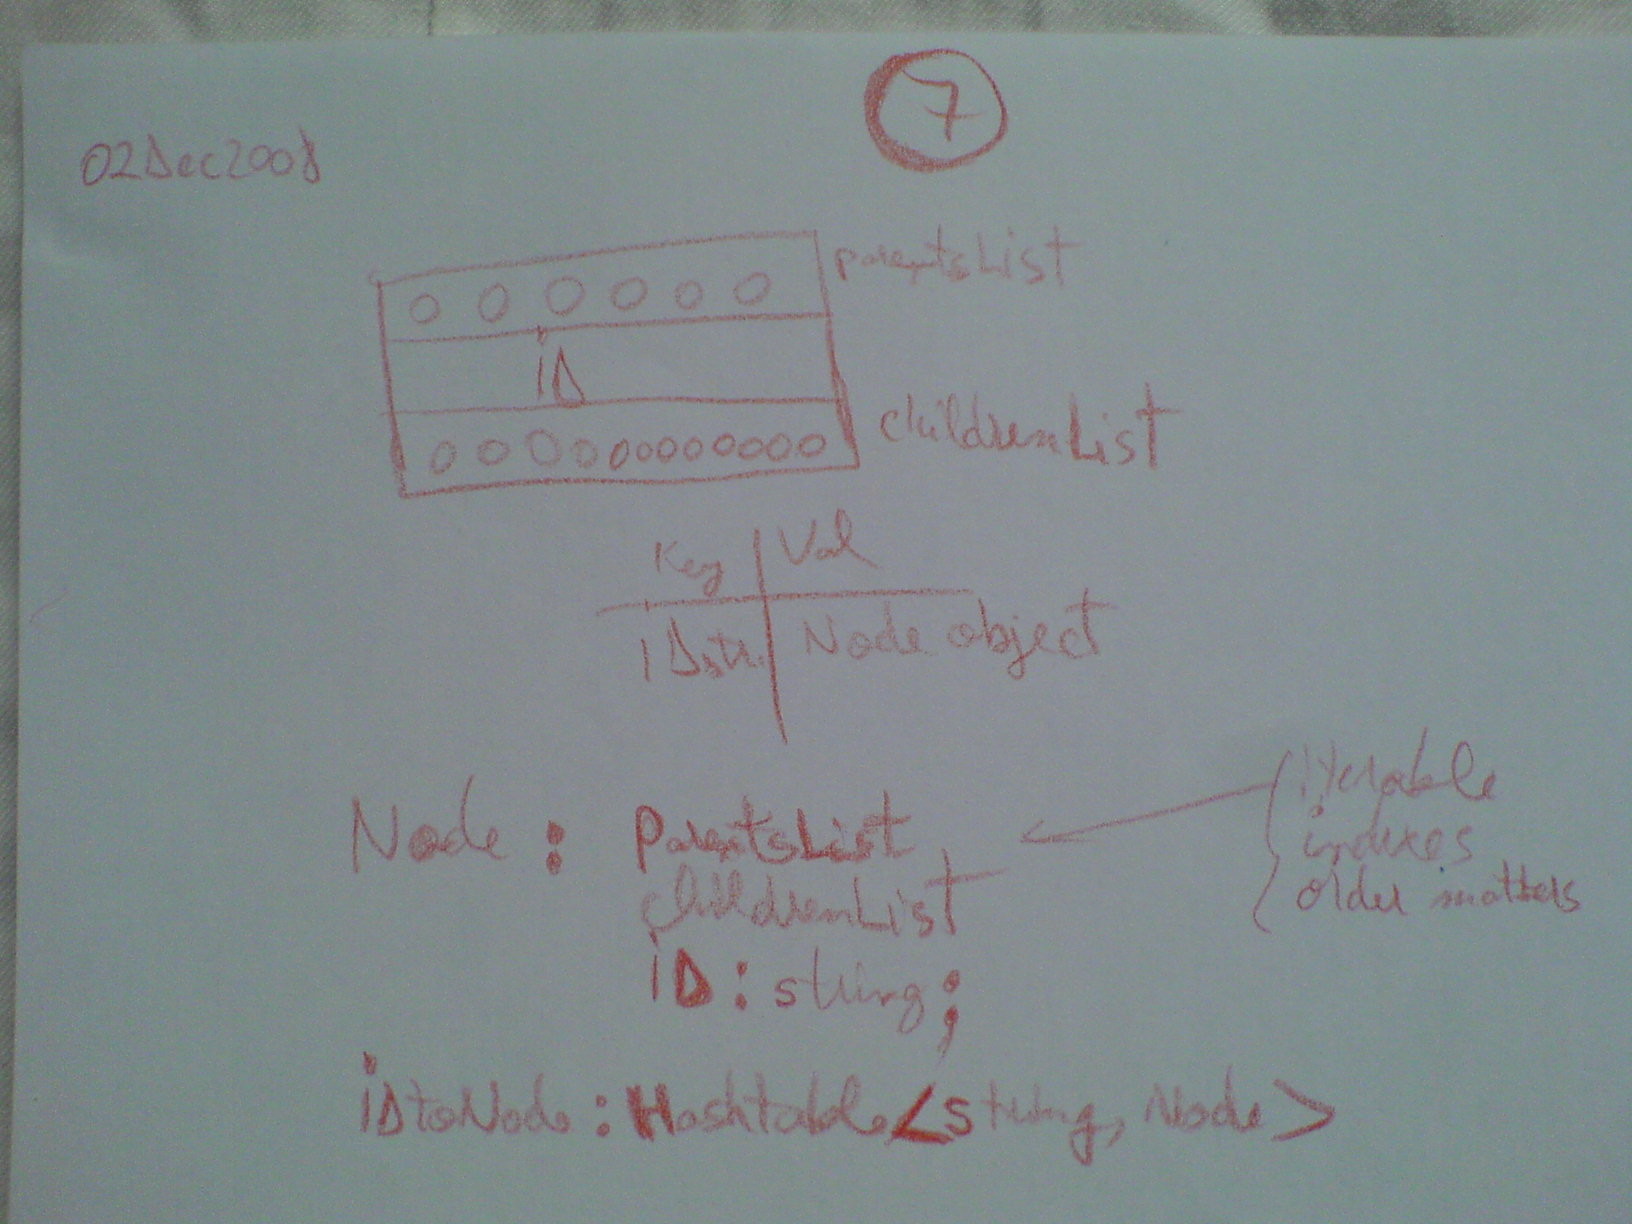 7
02Dec2008
parentsList
iD
childrenList
Key Val
IDstr. Node object
Node : ParentsList
childrenList
iD : string ;
iterable
indexes
order matters
iDtoNode : Hashtable <string, Node>